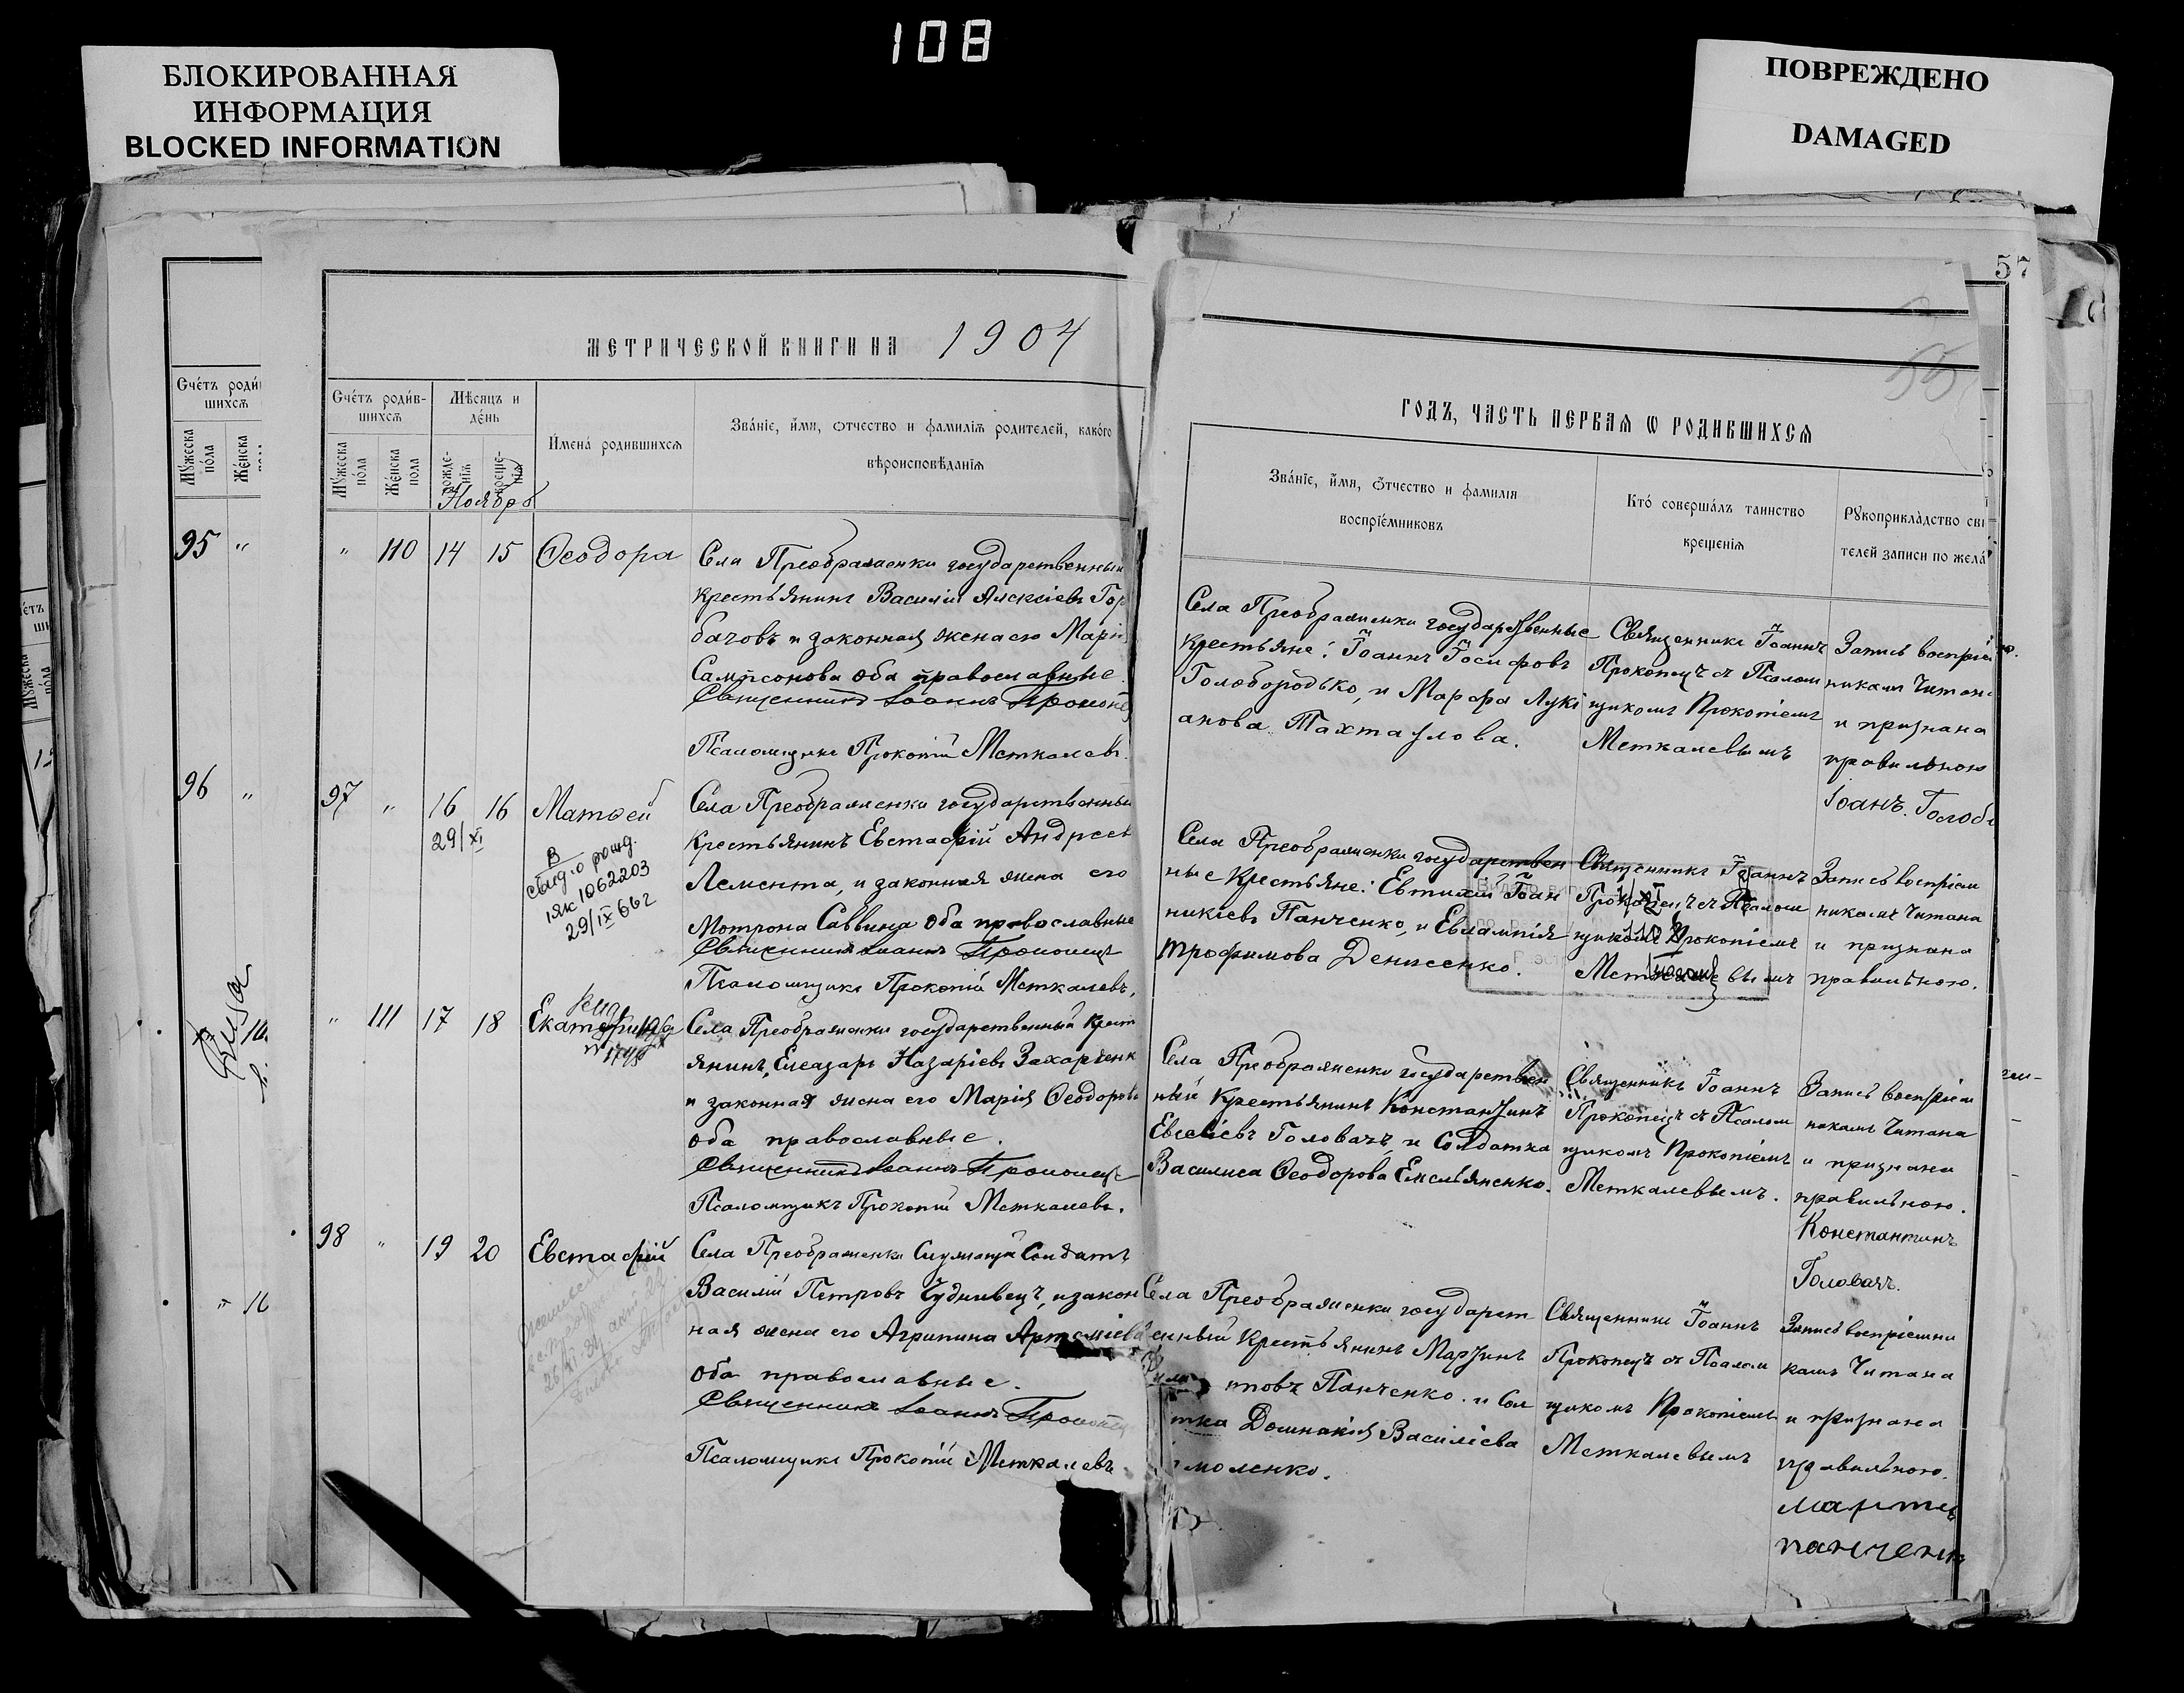 108
БЛОКИРОВАННАЯ
ИНФОРМАЦИЯ
BLOCKED INFORMATION
ПОВРЕЖДЕНО
DAMAGED
57
МЕТРИЧЕСКОЙ КНИГИ НА 1904
ГОДЪ, ЧАСТЬ ПЕРВАЯ Ѡ РОДИВШИХСЯ
Сче́тъ роди́
шихсѧ
Мꙋжеска по́ла
Же́нска
95 "
96 "
" 10
Сче́тъ роди́в-
шихсѧ
Мꙋжеска по́ла
Же́нска пола
Мѣсѧцъ и
де́нь
рожде-
нїѧ
креще-
нїѧ
Ноябрь
И҆мена́ родившихсѧ
Зва́нїе, и҆́мѧ, ѻтчество и фамилїѧ родителей, како́го
вѣроисповѣданїѧ
Зва́нїе, и҆́мѧ, ѻтчество и фамилїѧ
воспрїе́мниковъ
Кто́ соверша́лъ таинство
крещенїѧ
Рꙋкоприкла́дство сви
телей записи по жела
" 110 14 15 Ѳеодора
Села Преображенки государственный
крестьянинъ Василій Алексіевъ Гор
бачовъ и законная жена его Марія
Сампсонова оба православные.
Священникъ Іоаннъ Прокопец
Псаломщикъ Прокопій Меткалевъ.
Села Преображенки государственные
крестьяне: Іоаннъ Іосифовъ
Голобородько, и Марфа Лукі
анова Тахтаулова.
Священникъ Іоаннъ
Прокопецъ съ Псалом
щикомъ Прокопіемъ
Меткалевымъ
Запись воспріем
никамъ Читана
и признана
правильною
Іоанъ. Голоб
97 " 16 16 Матѳей
29/XI
В
свид. о рожд.
1ЯК 1062203
29/IX 66г
Села Преображенки государственный
крестьянинъ Евстафій Андреев
Лемента, и законная жена его
Мотрона Саввина оба православные
Священникъ Іоаннъ Прокопецъ
Псаломщикъ Прокопій Меткалевъ,
Села Преображенки государствен
ные Крестьяне: Евтихій Іоан
никіевъ Панченко, и Евлампія
Трофимова Денисенко.
Священникъ Іоаннъ
Прокопецъ съ Псалом
щикомъ Прокопіемъ
Меткалевымъ
Запись воспріем
никамъ Читана
и признана
правильною.
" 111 17 18 Екатерина
Села Преображенки государственный Крест
янинъ, Елеазаръ Назаріевъ Захарченк
и законная жена его Марія Ѳеодорова
оба православные.
Священникъ Іоаннъ Прокопецъ
Псаломщикъ Прокопій Меткалевъ.
Села Преображенки государствен
ный Крестьянинъ Константинъ
Евсевіевъ Головачъ, и Солдатка
Василиса Ѳеодорова Емельяненко.
Священникъ Іоаннъ
Прокопецъ съ Псалом
щикомъ Прокопіемъ
Меткалевымъ.
Запись воспріем
никамъ Читана
и признана
правильною.
Константинъ
Головачъ.
98 " 19 20 Евстафій
26/XI-31
Села Преображенки Служащій Солдатъ
Василій Петровъ Чудновецъ, и закон
ная жена его Агрипина Артеміева
оба православные.
Священникъ Іоаннъ Прокопец
Псаломщикъ Прокопій Меткалевъ.
Села Преображенки государст
енный Крестьянинъ Мартинъ
товъ Панченко. и Сол
тка Домникія Василіева
моленко.
Священникъ Іоаннъ
Прокопецъ съ Псалом
щикомъ Прокопіемъ
Меткалевымъ
Запись воспріемни
камъ Читана
и признана
правильною.
Мартин
панченк